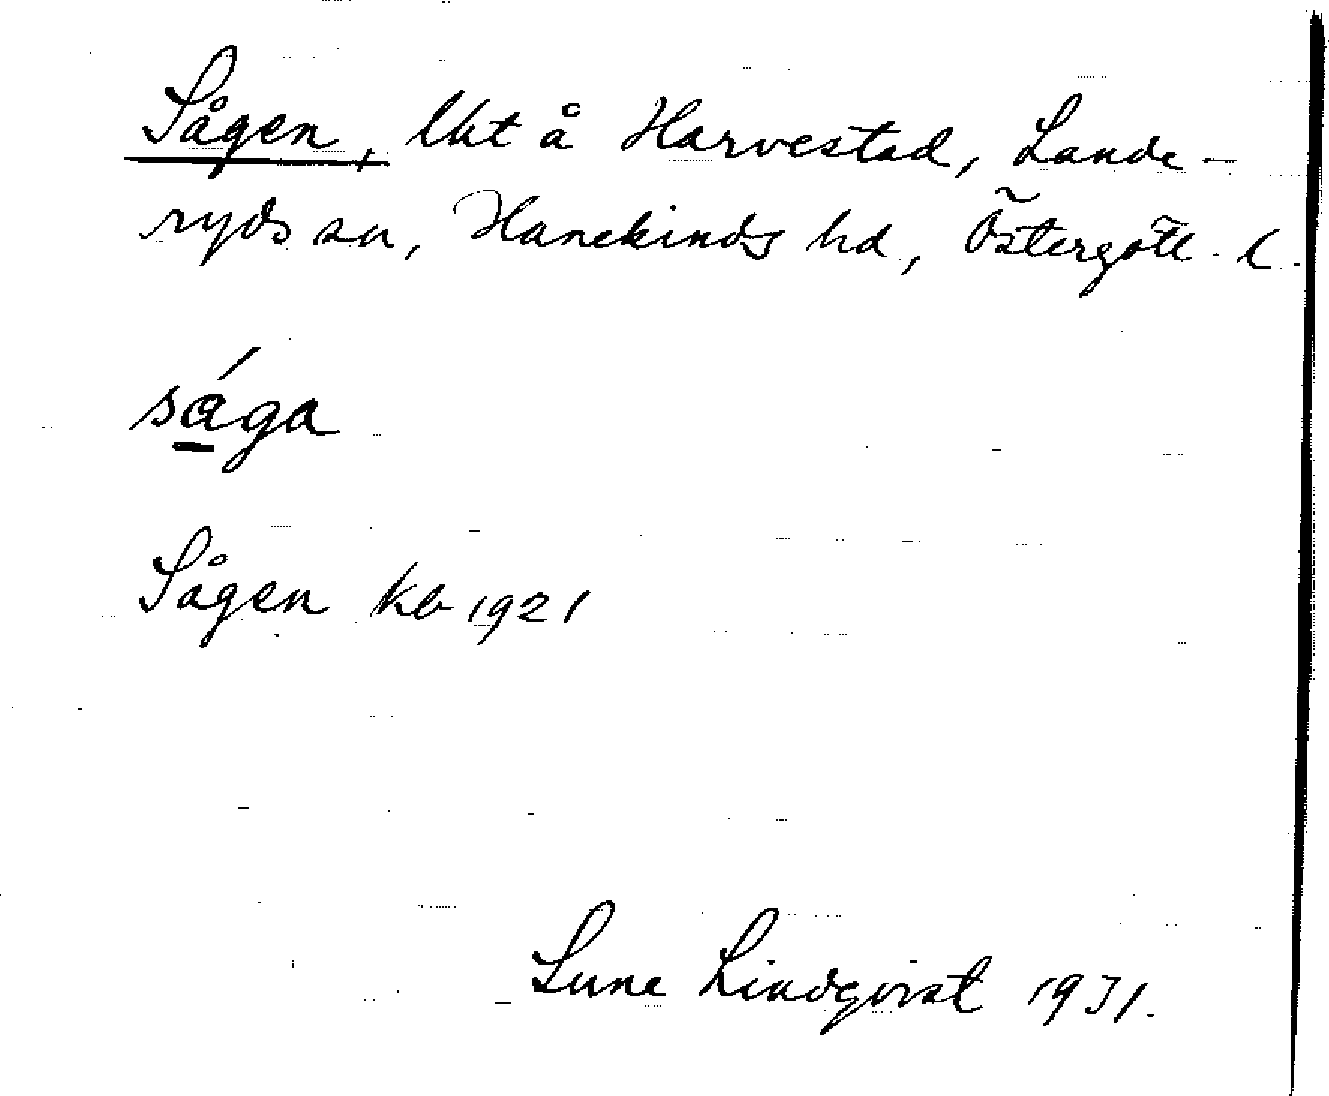 Sågen, lht å Harvestad, Lande-
ryds sn, Hanekinds hd, Östergötl. l.
såga
Sågen kb 1921
Sune Lindqvist 1931.